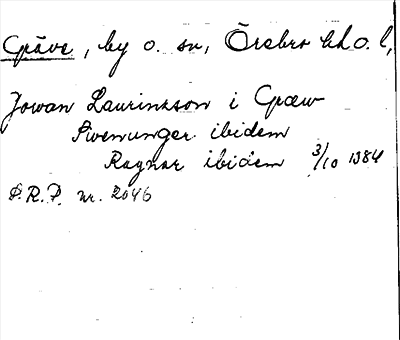 Gräve, by o. sn, Örebro hd o. l,
Jowan Laurinkson i Græw
Swenunger ibidem
Ragnar ibidem 3/10 1384
S.R.P. nr. 2046